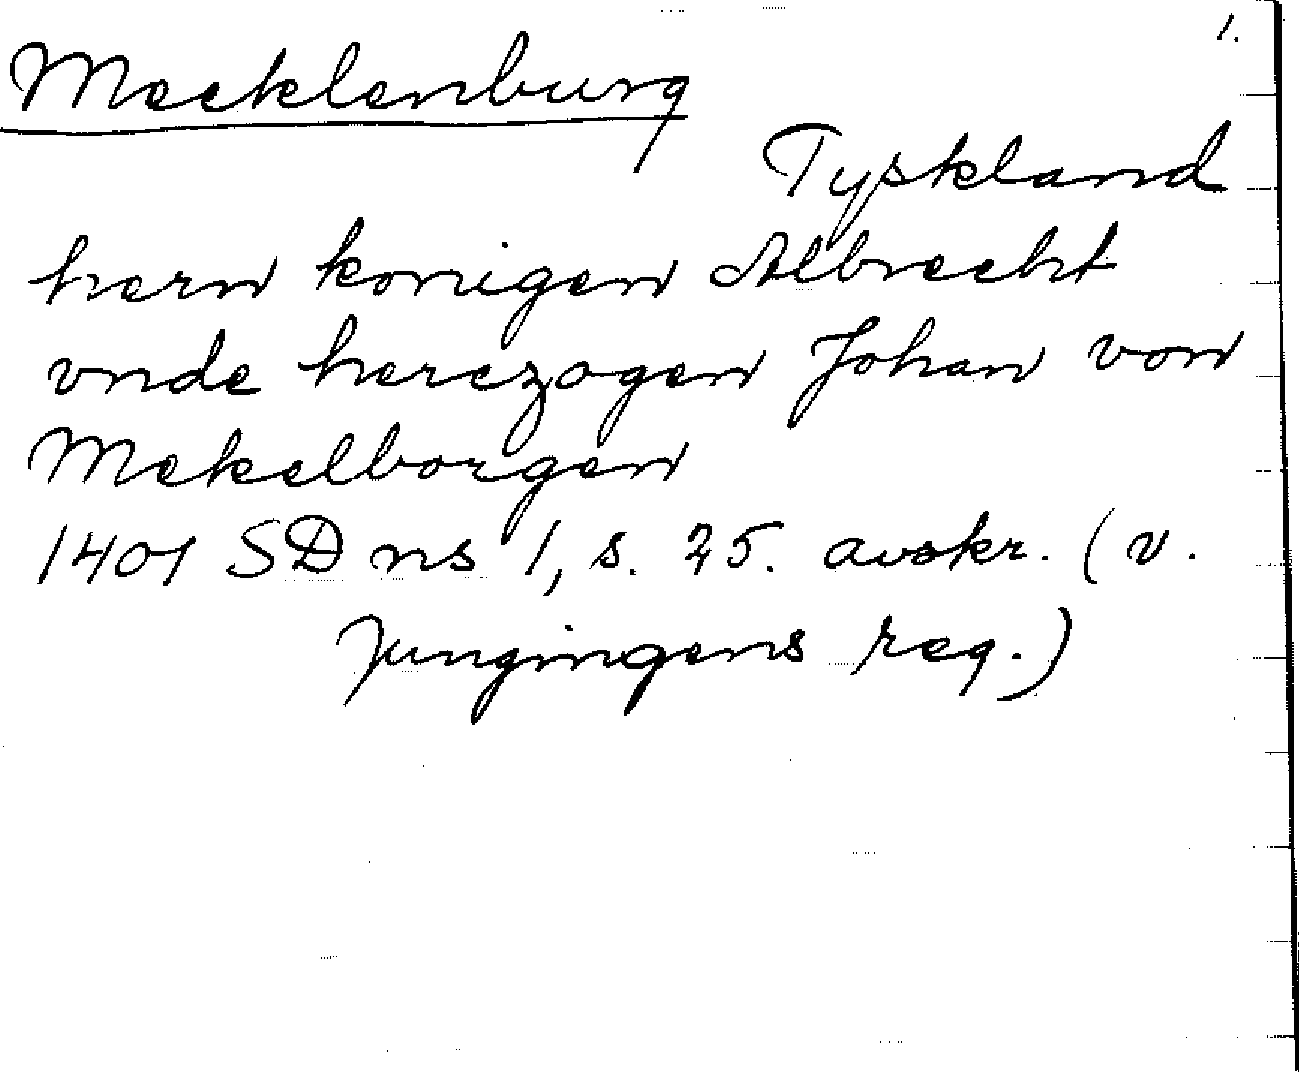 1.
Mecklenburg
Tyskland
hern konigen Albrecht
vnde herczogen Johan von
Mekelborgen
1401 SD ns 1, s. 25. avskr. (v.
Jungingens reg.)